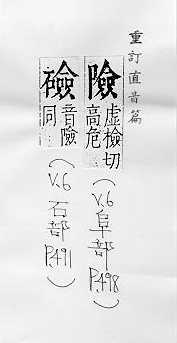 重訂直音篇
險 虛檢切
高危
(V.6 阜部 P.498)
礆 音險
同
(V.6 石部 P.491)